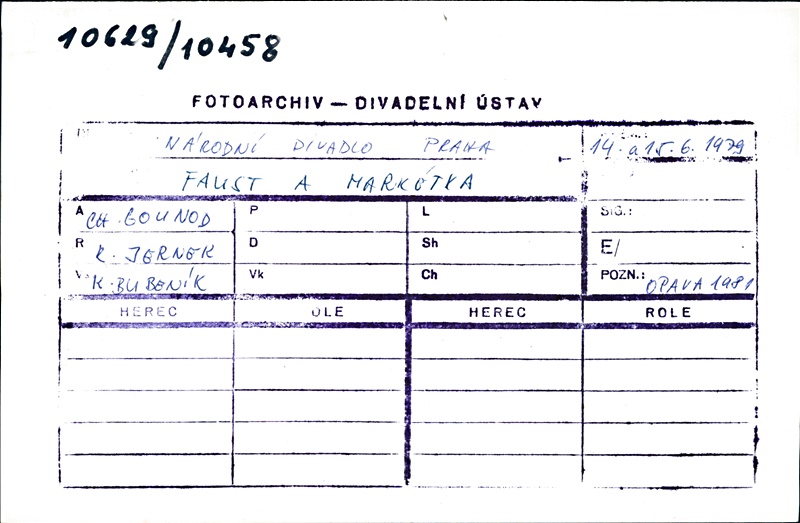 10629/10458
FOTOARCHIV — DIVADELNÍ ÚSTAV
NÁRODNÍ DIVADLO PRAHA 14. a 15. 6. 1979
FAUST A MARKÉTKA
A CH. GOUNOD P L SIG.:
R K. JERNEK D Sh E/
V K. BUBENÍK Vk Ch POZN.: OPAVA 1981
HEREC OLE HEREC ROLE